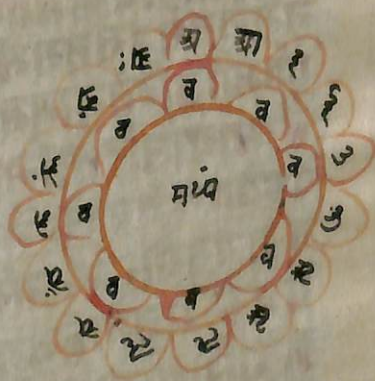 अ आ इ ई उ ऊ ऋ ॠ ऌ ॡ ए ऐ ओ औ अं अः
व व व व व व व व